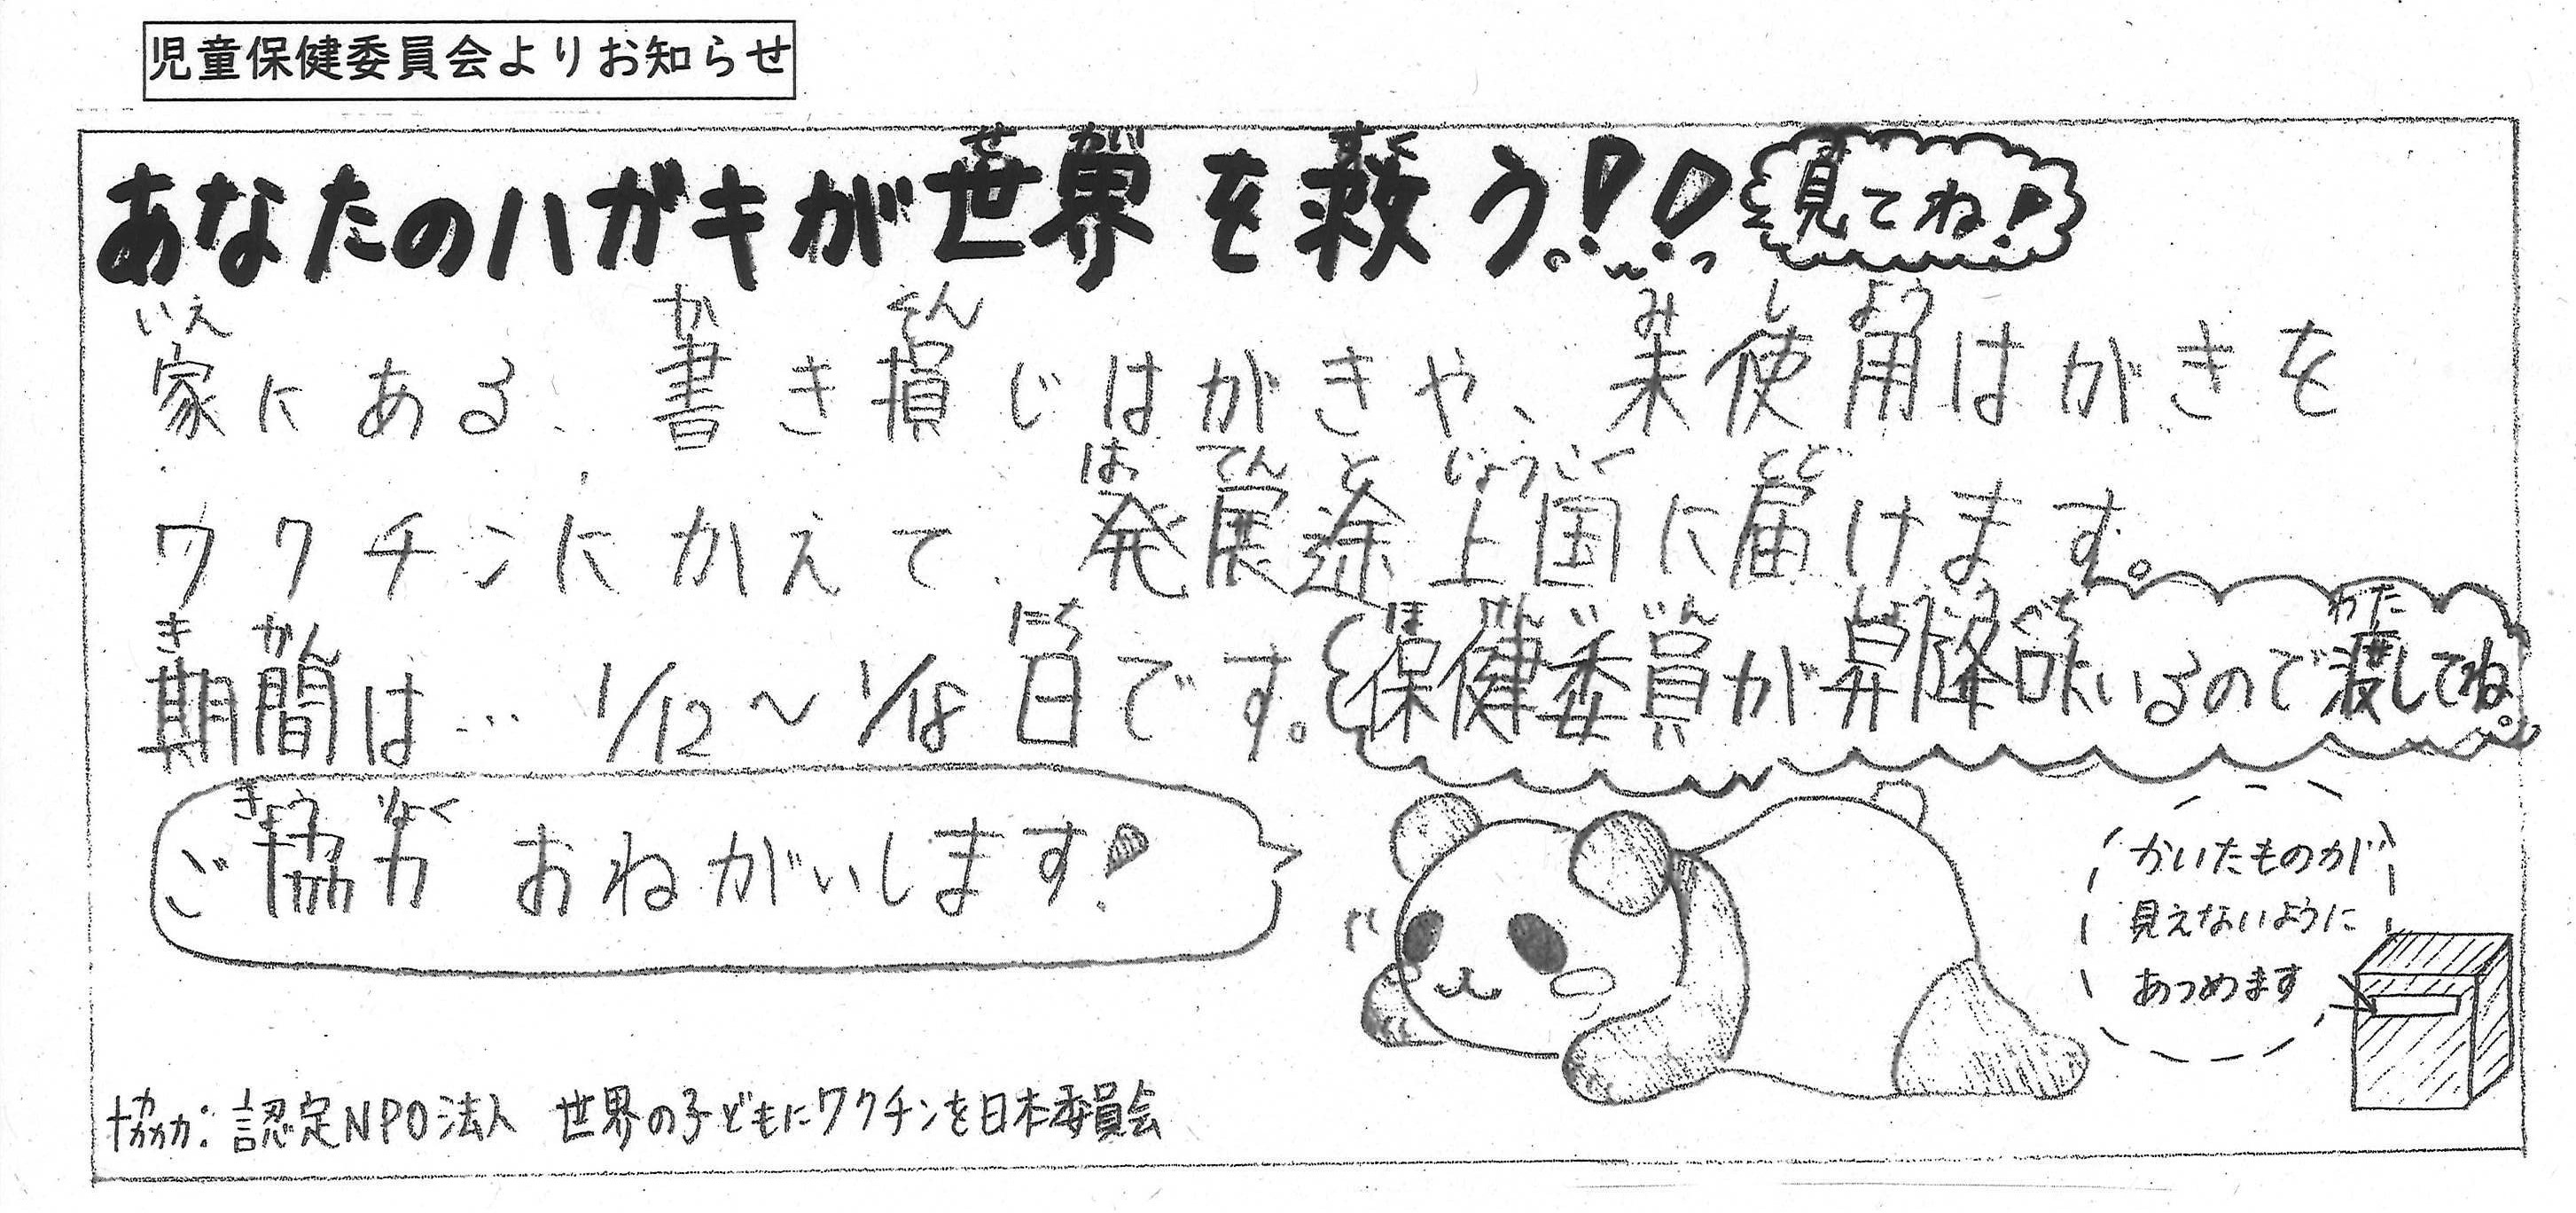 児童保健委員会よりお知らせ
あなたのハガキが世界を救う!! 見てね!
家にある書き損じはがきや、未使用はがきを
ワクチンにかえて発展途上国に届けます。
期間は… 1/12〜1/18日です。
保健委員が昇降口にいるので渡してね。
ご協力おねがいします!
かいたものが
見えないように
あつめます
協力:認定NPO法人 世界の子どもにワクチンを日本委員会